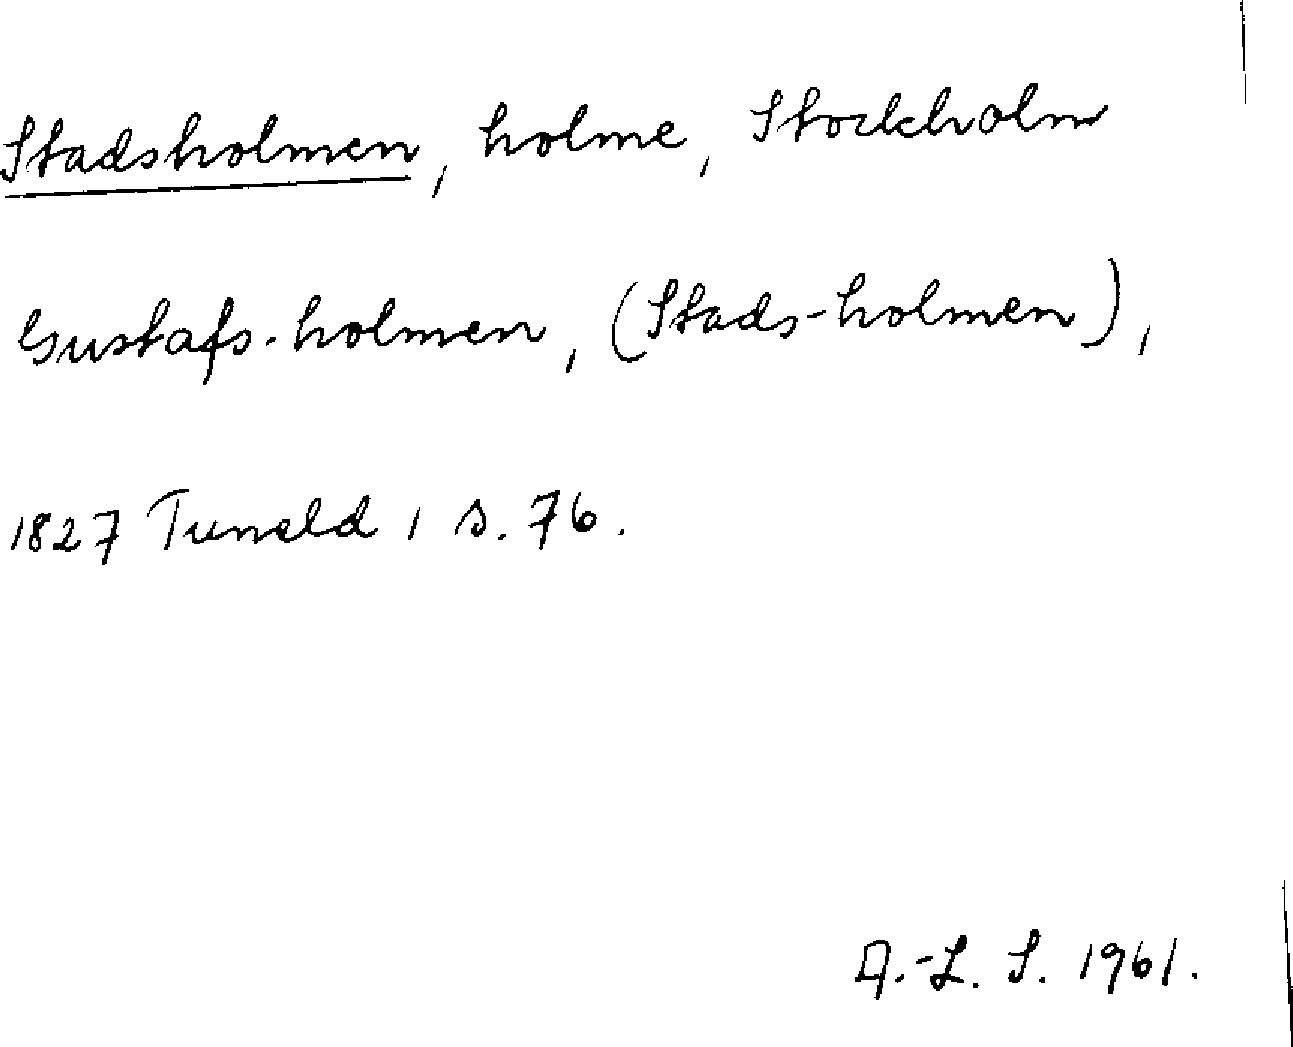 Stadsholmen, holme, Stockholm
Gustafs-holmen, (Stads-holmen),
1827 Tuneld 1 s. 76.
A.-L. S. 1961.